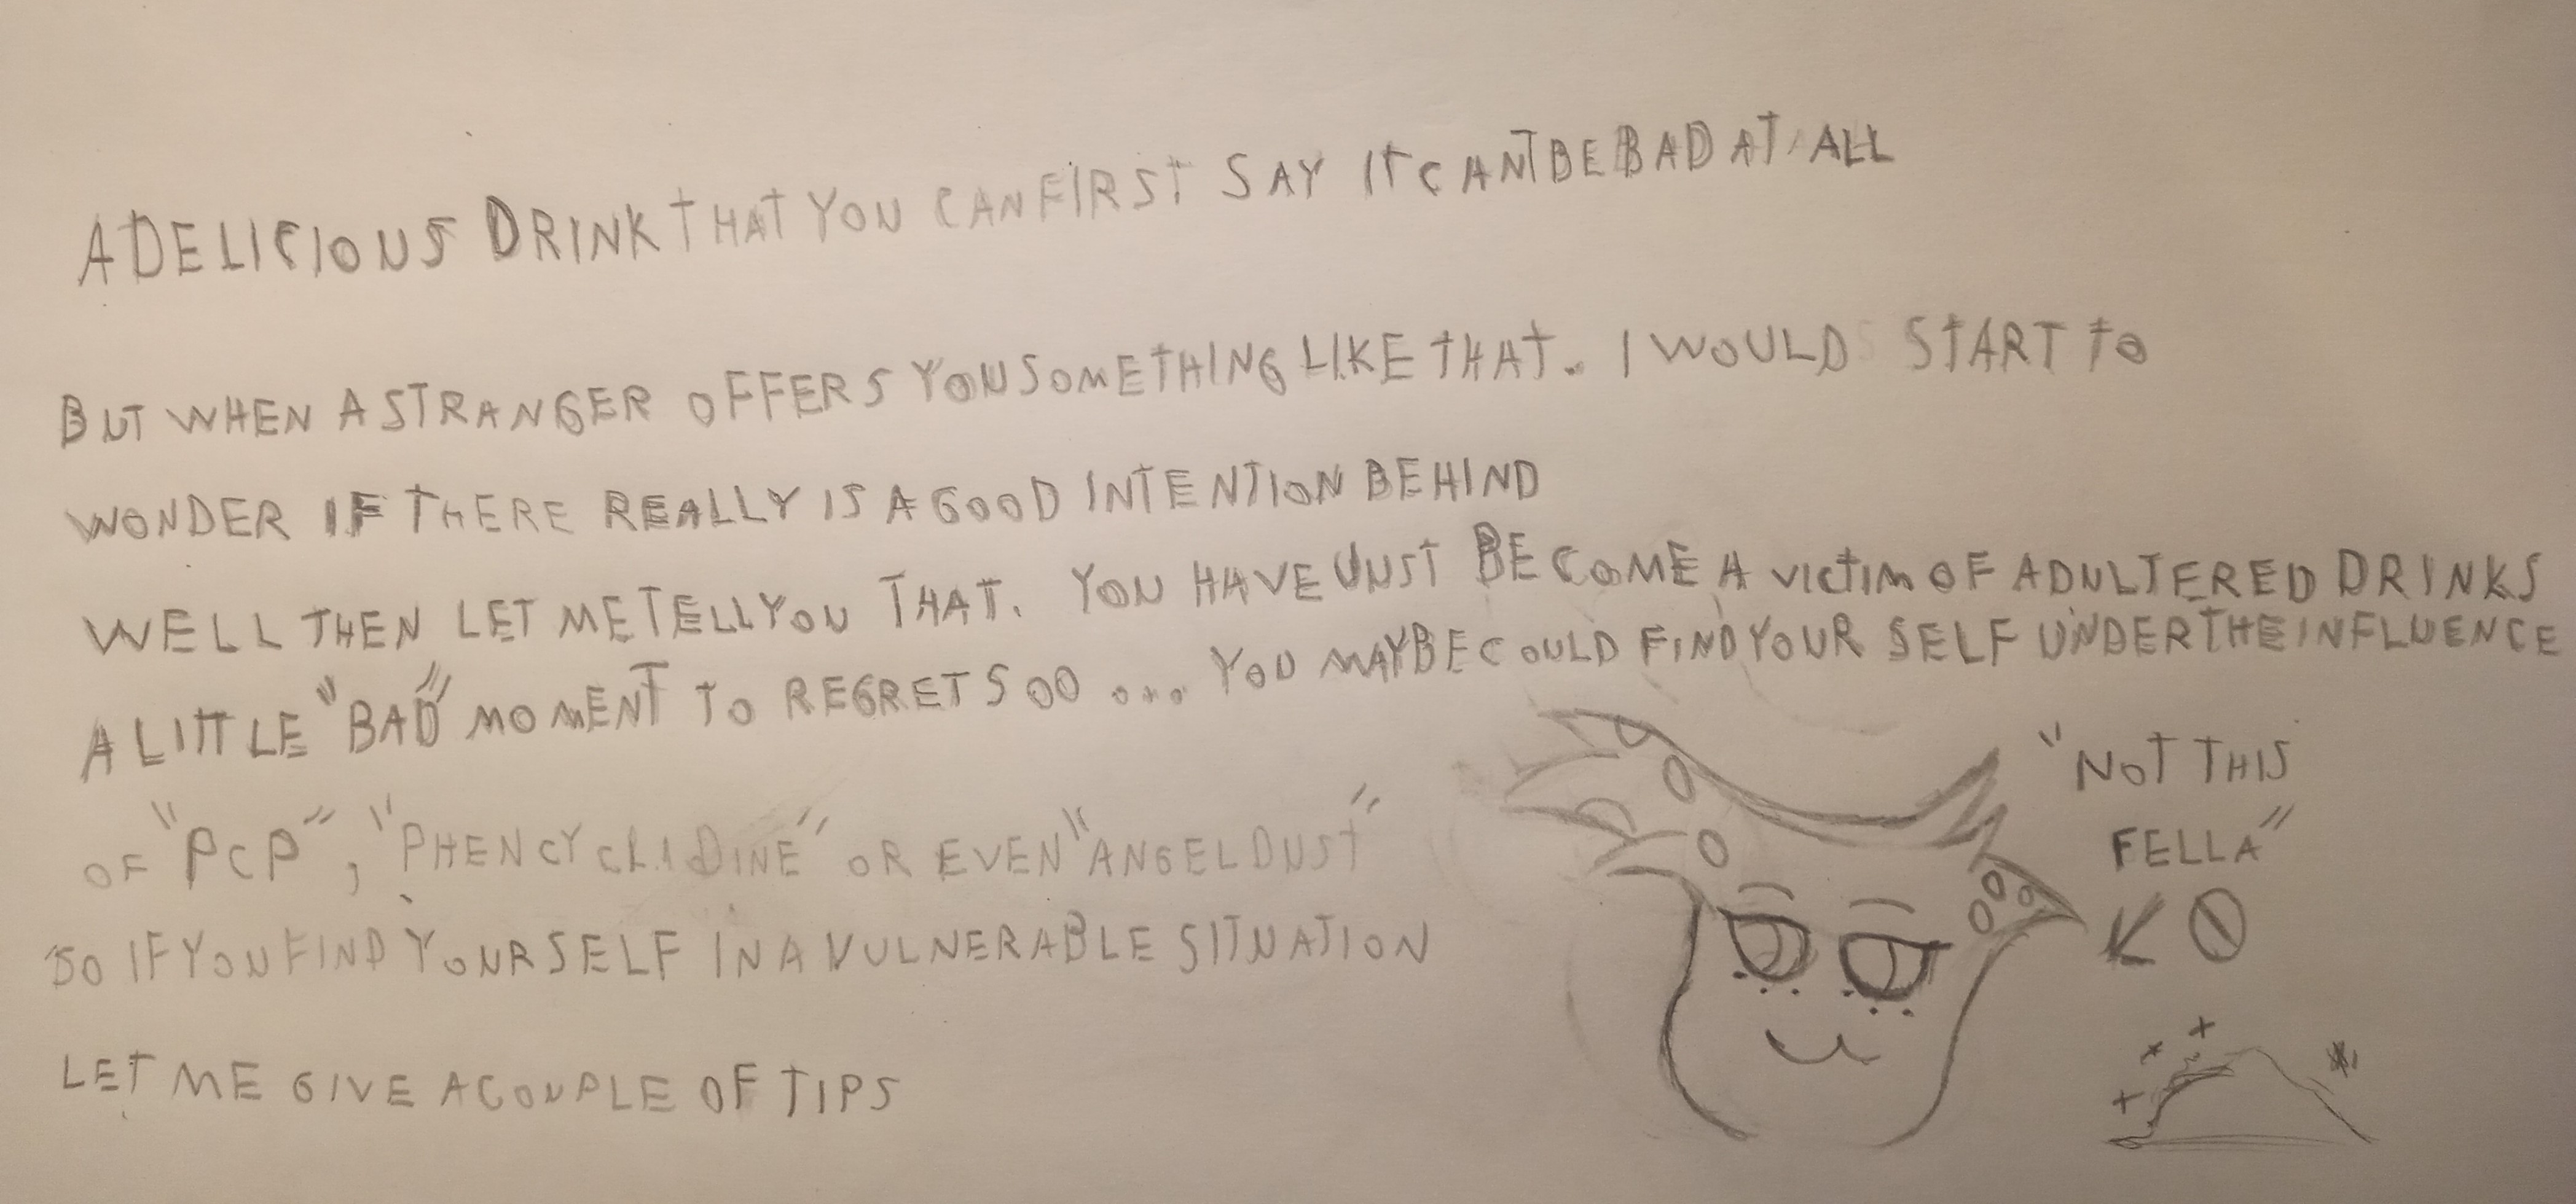 A DELICIOUS DRINK THAT YOU CAN FIRST SAY IT CANT BE BAD AT ALL
BUT WHEN A STRANGER OFFERS YOU SOMETHING LIKE THAT. I WOULD START TO
WONDER IF THERE REALLY IS A GOOD INTENTION BEHIND
WELL THEN LET ME TELL YOU THAT. YOU HAVE JUST BECOME A VICTIM OF ADULTERED DRINKS
A LITTLE "BAD" MOMENT TO REGRET SOO ... YOU MAYBE COULD FIND YOUR SELF UNDER THE INFLUENCE
OF "PCP", "PHENCYCLIDINE" OR EVEN "ANGEL DUST"
SO IF YOU FIND YOURSELF IN A VULNERABLE SITUATION
LET ME GIVE A COUPLE OF TIPS
"NOT THIS
FELLA"